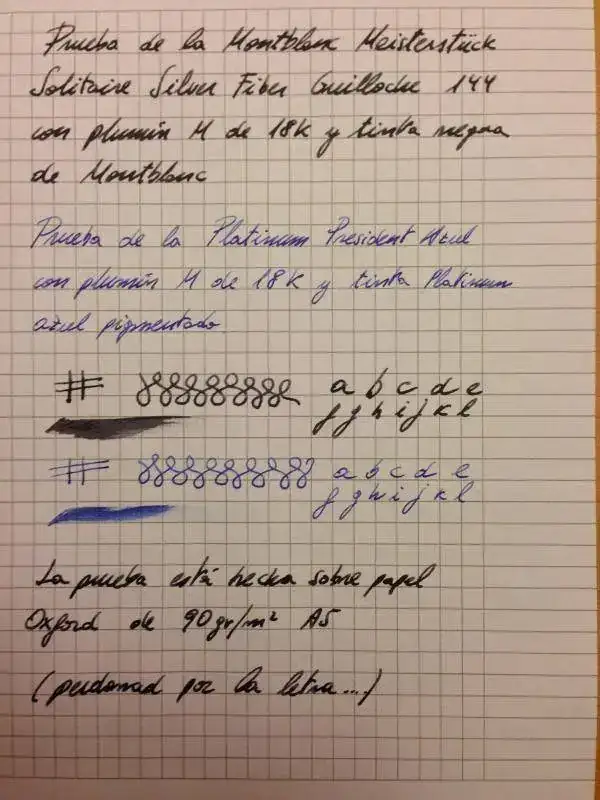 Prueba de la Montblanc Meisterstück
Solitaire Silver Fiber Guilloche 144
con plumín M de 18K y tinta negra
de Montblanc
Prueba de la Platinum President Azul
con plumín M de 18K y tinta Platinum
azul pigmentado
# a b c d e
f g h i j k l
# a b c d e
f g h i j k l
La prueba está hecha sobre papel
Oxford de 90gr/m² A5
(perdonad por la letra...)